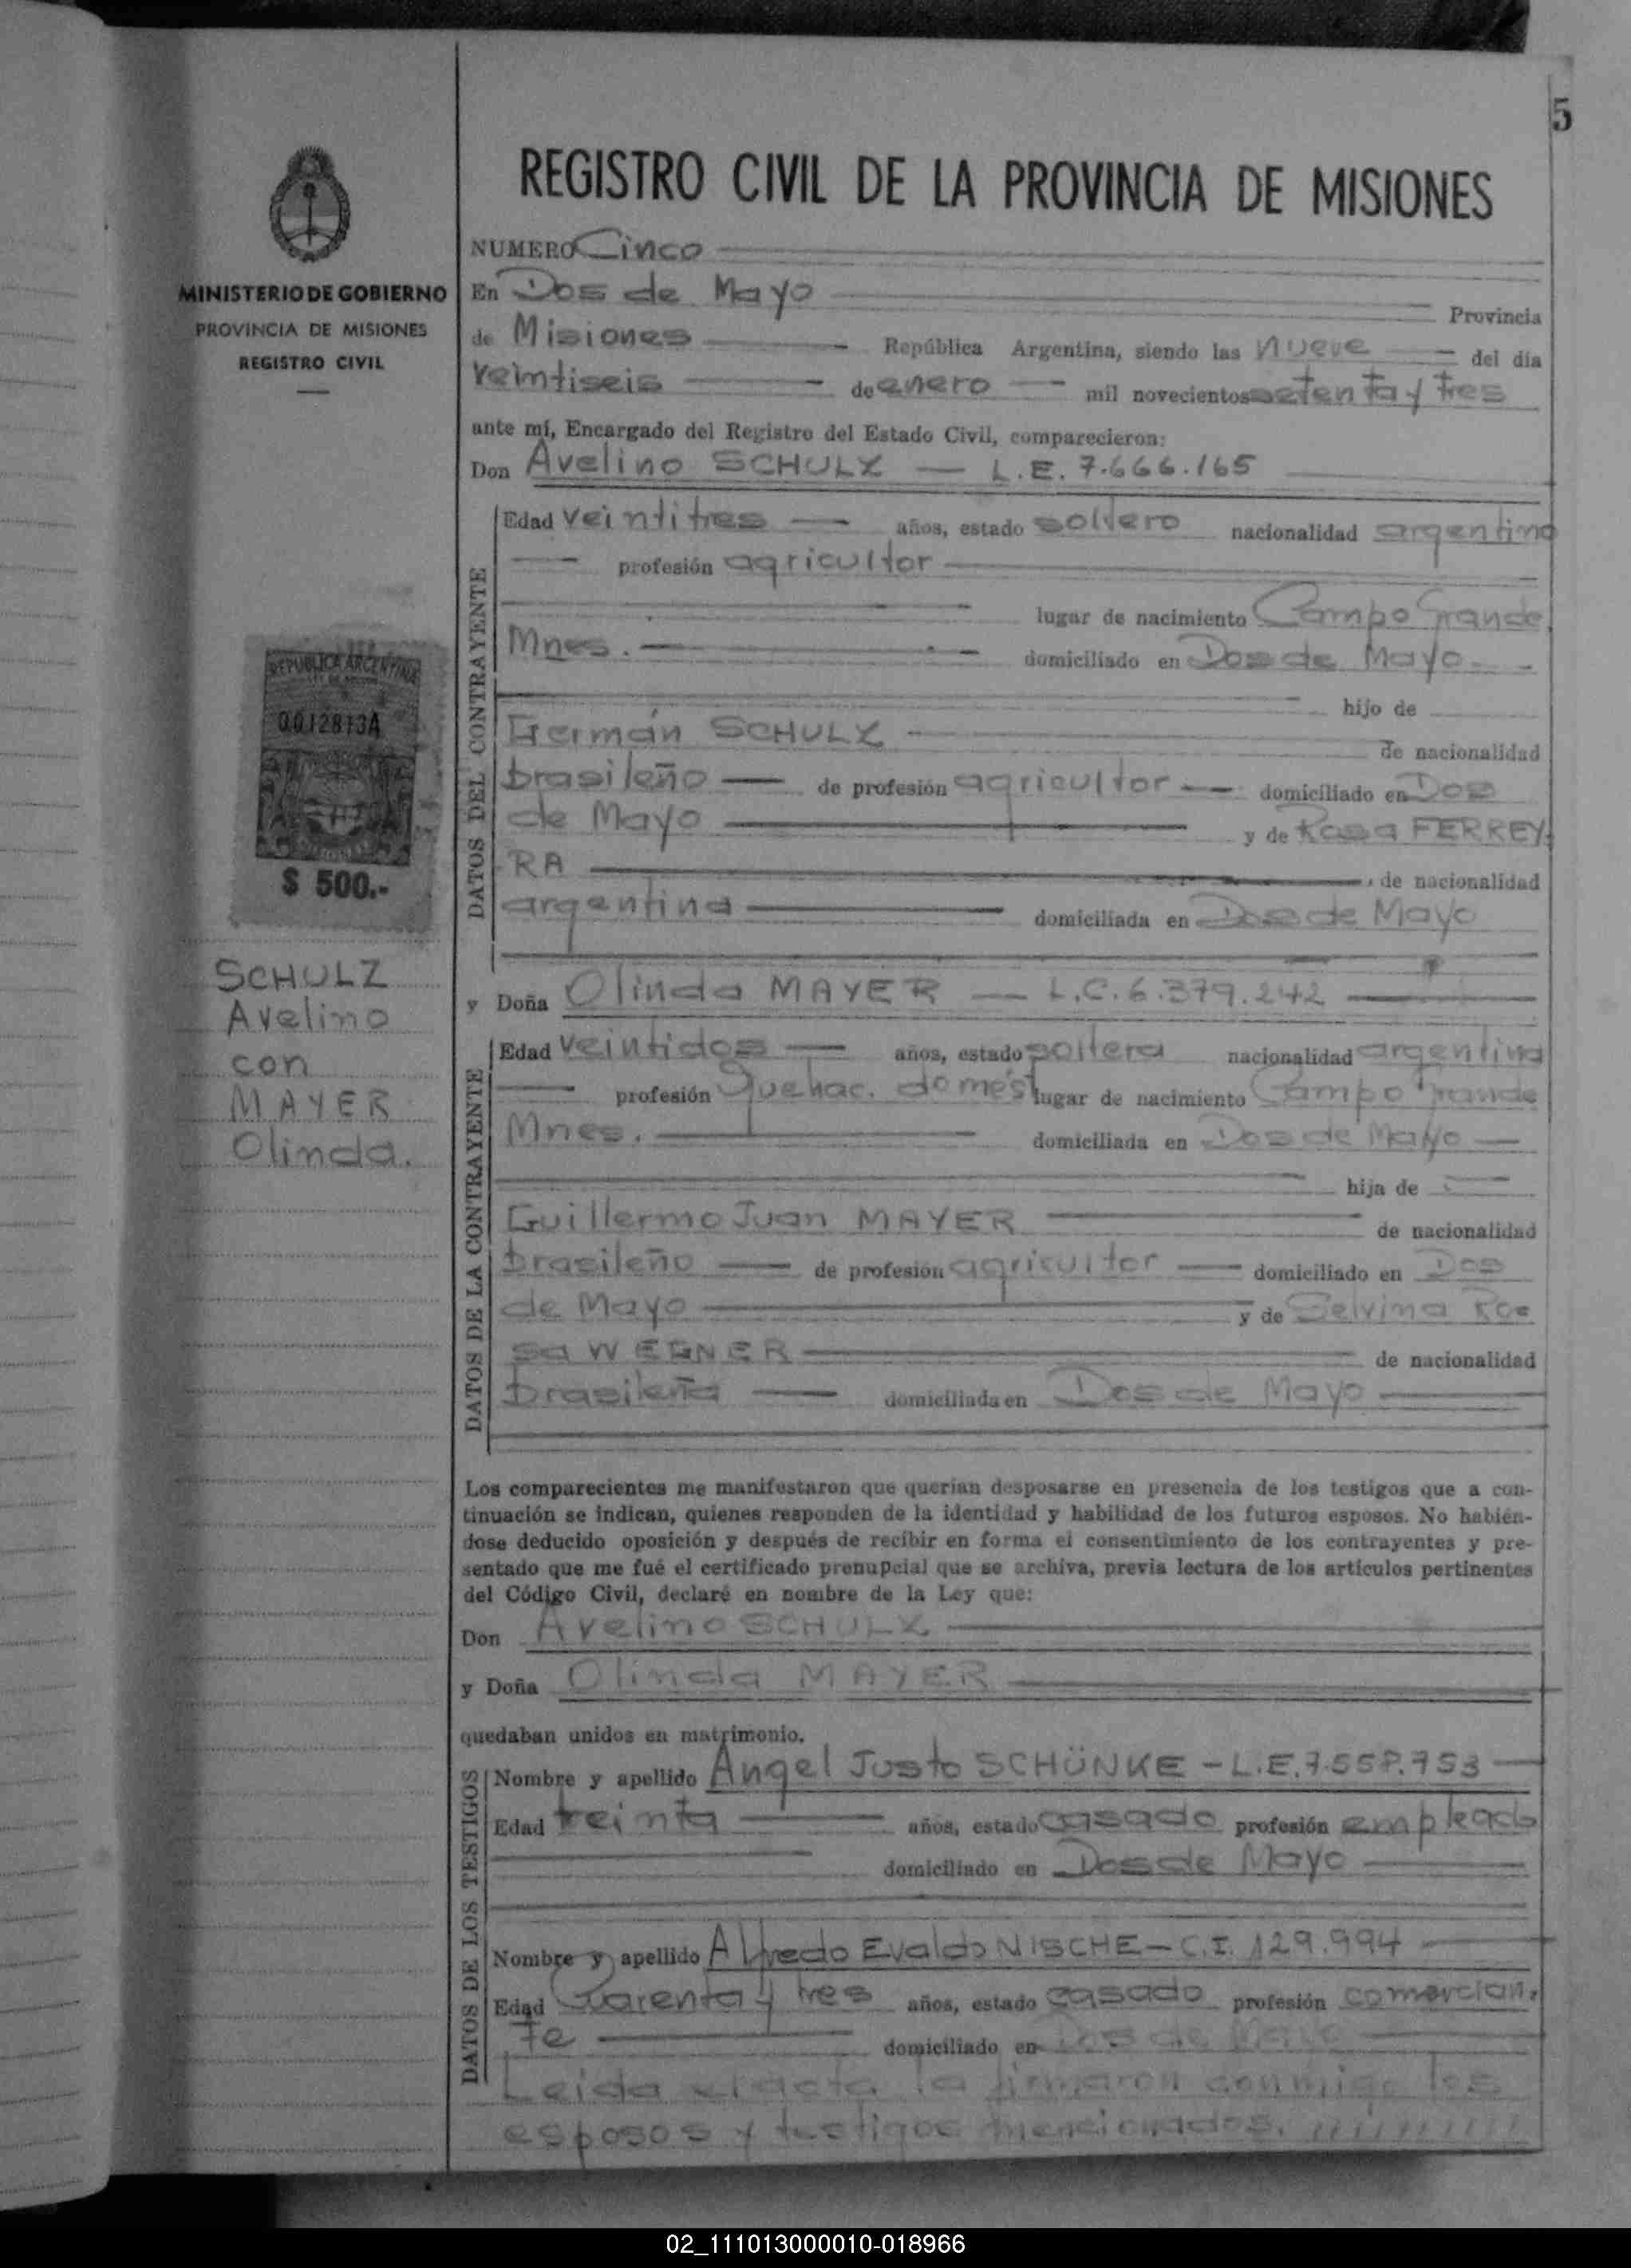 5
REGISTRO CIVIL DE LA PROVINCIA DE MISIONES
MINISTERIO DE GOBIERNO
PROVINCIA DE MISIONES
REGISTRO CIVIL
REPUBLICA ARGENTINA
0012813A
$ 500.-
SCHULZ
Avelino
con
MAYER
Olinda.
NUMERO Cinco
En Dos de Mayo Provincia
de Misiones República Argentina, siendo las nueve del día
veintiseis de enero mil novecientos setenta y tres
ante mí, Encargado del Registro del Estado Civil, comparecieron:
Don Avelino SCHULZ — L.E. 7.666.165
DATOS DEL CONTRAYENTE
Edad veintitres — años, estado soltero nacionalidad argentino
profesión agricultor
lugar de nacimiento Campo Grande
Mnes. domiciliado en Dos de Mayo
hijo de
Germán SCHULZ de nacionalidad
brasileño — de profesión agricultor — domiciliado en Dos
de Mayo y de Rosa FERREY-
RA , de nacionalidad
argentina domiciliada en Dos de Mayo
y Doña Olinda MAYER — L.C. 6.379.242
DATOS DE LA CONTRAYENTE
Edad veintidos — años, estado soltera nacionalidad argentina
profesión Quehac. domést lugar de nacimiento Campo Grande
Mnes. domiciliada en Dos de Mayo —
hija de
Guillermo Juan MAYER de nacionalidad
brasileño — de profesión agricultor — domiciliado en Dos
de Mayo y de Selvina Ro=
sa WEGNER de nacionalidad
brasileña — domiciliada en Dos de Mayo
Los comparecientes me manifestaron que querían desposarse en presencia de los testigos que a con-
tinuación se indican, quienes responden de la identidad y habilidad de los futuros esposos. No habién-
dose deducido oposición y después de recibir en forma el consentimiento de los contrayentes y pre-
sentado que me fué el certificado prenupcial que se archiva, previa lectura de los artículos pertinentes
del Código Civil, declaré en nombre de la Ley que:
Don Avelino SCHULZ
y Doña Olinda MAYER
quedaban unidos en matrimonio.
DATOS DE LOS TESTIGOS
Nombre y apellido Angel Justo SCHÜNKE - L.E. 7.558.753
Edad treinta años, estado casado profesión empleado
domiciliado en Dos de Mayo
Nombre y apellido Alfredo Evaldo NISCHE - C.I. 129.994
Edad Cuarenta y tres años, estado casado profesión comercian-
te domiciliado en Dos de Mayo
Leida el acta la firmaron conmigo los
esposos y testigos mencionados.
02_111013000010-018966